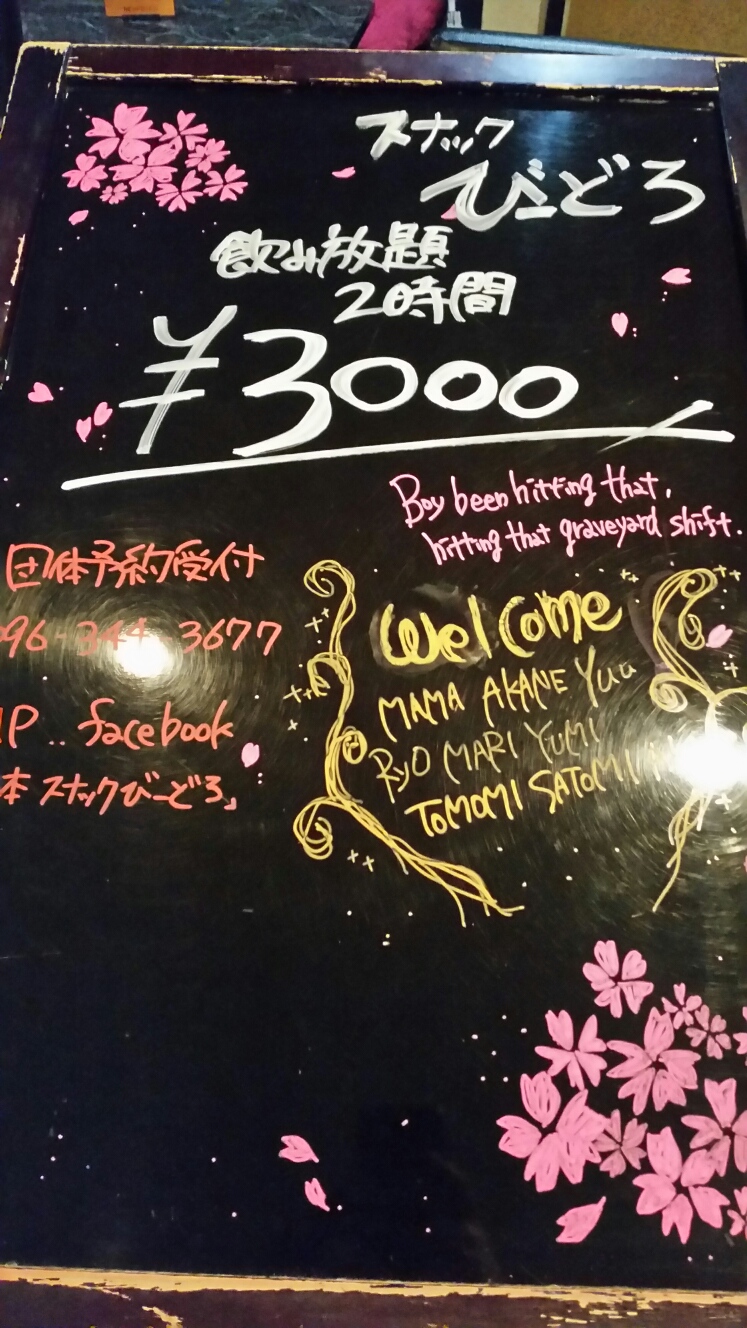 スナック
びーどろ
飲み放題
2時間
¥3000
Boy been hitting that,
hitting that graveyard shift.
団体予約受付
096-344 3677
HP.. facebook
本 スナックびーどろ」
Welcome
MAMA AKANE YUU
RYO MARI YUMI
TOMOMI SATOMI